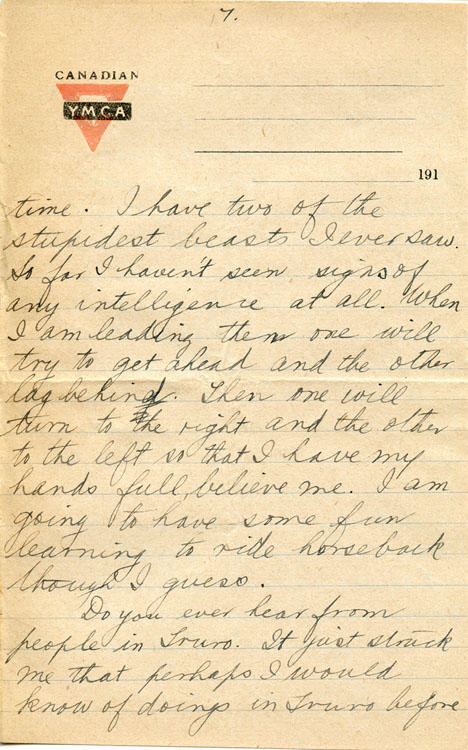 7.
CANADIAN
YMCA
191
time. I have two of the
stupidest beasts I ever saw.
So far I haven't seen signs of
any intelligence at all. When
I am leading them one will
try to get ahead and the other
lag behind. Then one will
turn to the right and the other
to the left so that I have my
hands full, believe me. I am
going to have some fun
learning to ride horseback
though I guess.
Do you ever hear from
people in Truro. It just struck
me that perhaps I would
know of doings in Truro before